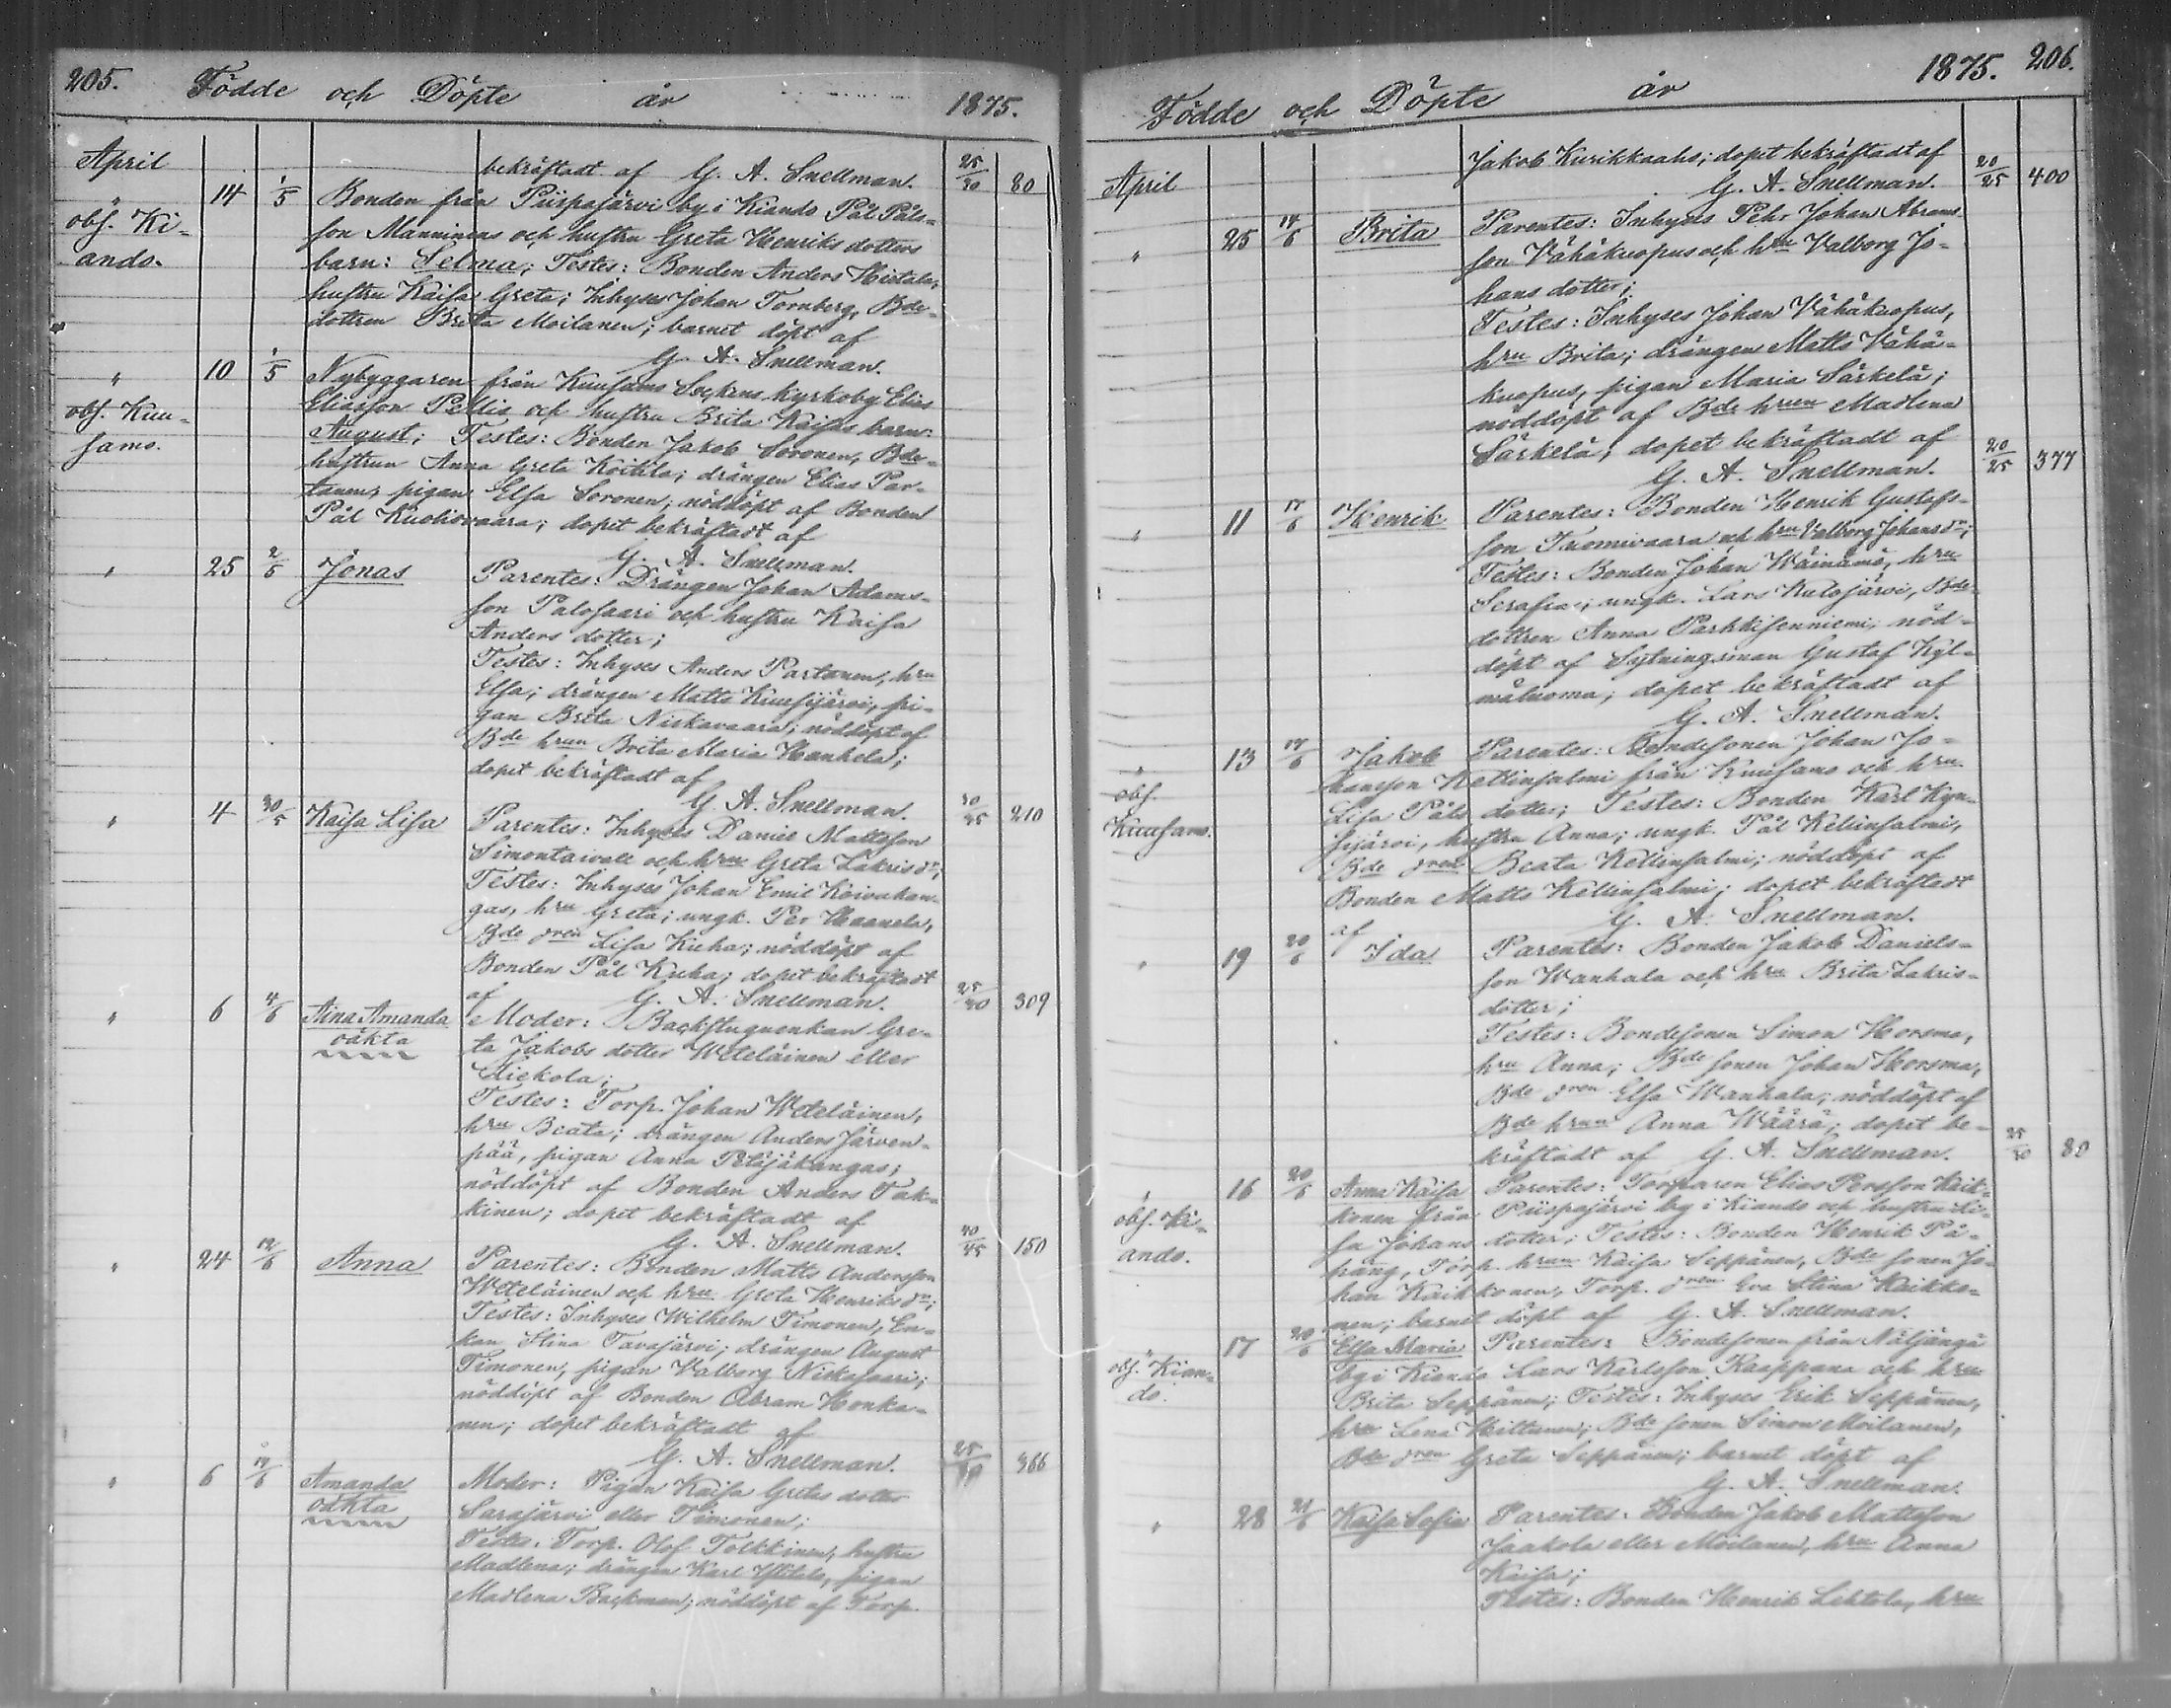 205. Födde och Döpte år 1875.
April
bekräftadt af G. A. Snellman. 25/30 80
" 14 1/5 Bonden från Piispajärvi by i Kiando Pål Påls-
obs. Ki- son Manninens och hustru Greta Henriks dotters
ando. barn: Selma; Testes: Bonden Anders Hietala,
hustru Kaisa Greta; Inhyses Johan Tornberg, Bde-
dottren Brita Moilanen; barnet döpt af
G. A. Snellman.
" 10 1/5 Nybyggaren från Kuusamo Sockens kyrkoby Elias
obs. Kuu- Eliasson Pellis och hustru Brita Kaisas barn:
samo. August; Testes: Bonden Jakob Soronen, Bde-
hustrun Anna Greta Koitila; drängen Elias Par-
tanen, pigan Elsa Soronen; nöddöpt af Bonden
Pål Kuoliovaara; dopet bekräftadt af
G. A. Snellman.
" 25 2/5 Jonas Parentes: Drängen Johan Adams-
son Palosaari och hustru Kaisa
Anders dotter;
Testes: Inhyses Anders Partanen, hru
Elsa; drängen Matts Kuusijärvi, pi-
gan Brita Niskavaara; nöddöpt af
Bde hrun Brita Maria Hankela;
dopet bekräftadt af
G. A. Snellman. 30/35 210
" 4 30/5 Kaisa Lisa Parentes: Inhyses Daniel Mattsson
Simontaival och hru Greta Zakris dr;
Testes: Inhyses Johan Emil Koivukan-
gas, hru Greta; ungk. Per Haanela,
Bde dren Lisa Kuha; nöddöpt af
Bonden Pål Kuha; dopet bekräftadt
af G. A. Snellman. 25/30 309
" 6 4/6 Aina Amanda Moder: Backstuguenkan Gre-
oäkta ta Jakobs dotter Weteläinen eller
Kiekola;
Testes: Torp. Johan Weteläinen,
hru Beata; drängen Anders Järven-
pää, pigan Anna Petäjäkangas;
nöddöpt af Bonden Anders Tak-
kinen; dopet bekräftadt af
G. A. Snellman. 40/45 150
" 24 12/6 Anna Parentes: Bonden Matts Andersson
Weteläinen och hru Greta Henriks dr;
Testes: Inhyses Wilhelm Timonen, En-
kan Stina Tavajärvi; drängen August
Timonen, pigan Valborg Niskasaari;
nöddöpt af Bonden Abram Honka-
nen; dopet bekräftadt af
G. A. Snellman. 25/30 366
" 6 Amanda Moder: Pigan Kaisa Gretas dotter
oäkta Sarajärvi eller Timonen;
Testes: Torp. Olof Tolkkinen, hustru
Madlena; drängen Karl Ylitalo, pigan
Madlena Backman; nöddöpt af Torp.
Födde och Döpte år 1875. 206.
April
Jakob Kurikkaaho; dopet bekräftadt af
G. A. Snellman. 20/25 400
" 25 14/6 Brita Parentes: Inhyses Pehr Johan Abrams-
son Vähäkuopus och hru Valborg Jo-
hans dotter;
Testes: Inhyses Johan Vähäkuopus,
hru Brita; drängen Matts Vähä-
kuopus, pigan Maria Särkelä;
nöddöpt af Bde hrun Madlena
Särkelä; dopet bekräftadt af
G. A. Snellman. 20/25 377
" 11 17/6 Henrik Parentes: Bonden Henrik Gustafs-
son Tuomivaara och hru Valborg Johans dr;
Testes: Bonden Johan Wäinämö, hru
Serafia; ungk. Lars Kulojärvi, Bde-
dottren Anna Parkkisenniemi; nöd-
döpt af Sytningsman Gustaf Kyl-
mäluoma; dopet bekräftadt af
G. A. Snellman.
" 13 17/6 Jakob Parentes: Bondesonen Johan Jo-
obs. hansson Kellinsalmi från Kuusamo och hru
Kuusamo. Lisa Påls dotter; Testes: Bonden Karl Kyn-
sijärvi, hustru Anna; ungk. Pål Kellinsalmi,
Bde dren Beata Kellinsalmi; nöddöpt af
Bonden Matts Kellinsalmi; dopet bekräftadt
af G. A. Snellman.
" 19 20/6 Ida Parentes: Bonden Jakob Daniels-
son Wanhala och hru Brita Zakris-
dotter;
Testes: Bondesonen Simon Horsma,
hru Anna; Bde sonen Johan Horsma,
Bde dren Elsa Wanhala; nöddöpt af
Bde hrun Anna Wäärä; dopet be-
kräftadt af G. A. Snellman. 25/30 80
" 16 20/6 Anna Kaisa Parentes: Torparen Elias Persson Kaik-
obs. Ki- konen från Piispajärvi by i Kiando och hustru Li-
ando. sa Johans dotter; Testes: Bonden Henrik På-
häng, Torp. hrun Kaisa Seppänen, Bde sonen Jo-
han Kaikkonen, Torp. dren Eva Stina Kaikko-
nen; barnet döpt af G. A. Snellman.
" 17 20/6 Elsa Maria Parentes: Bondesonen från Näljängä
obs. Kian- by i Kiando Lars Karlsson Kaappana och hru
do. Brita Seppänen; Testes: Inhyses Erik Seppänen,
hru Lena Hiltunen; Bde sonen Simon Moilanen,
Bde dren Greta Seppänen; barnet döpt af
G. A. Snellman.
" 28 21/6 Kaisa Sofia Parentes: Bonden Jakob Mattsson
Jaakola eller Moilanen, hru Anna
Kaisa;
Testes: Bonden Henrik Lehtola, hru